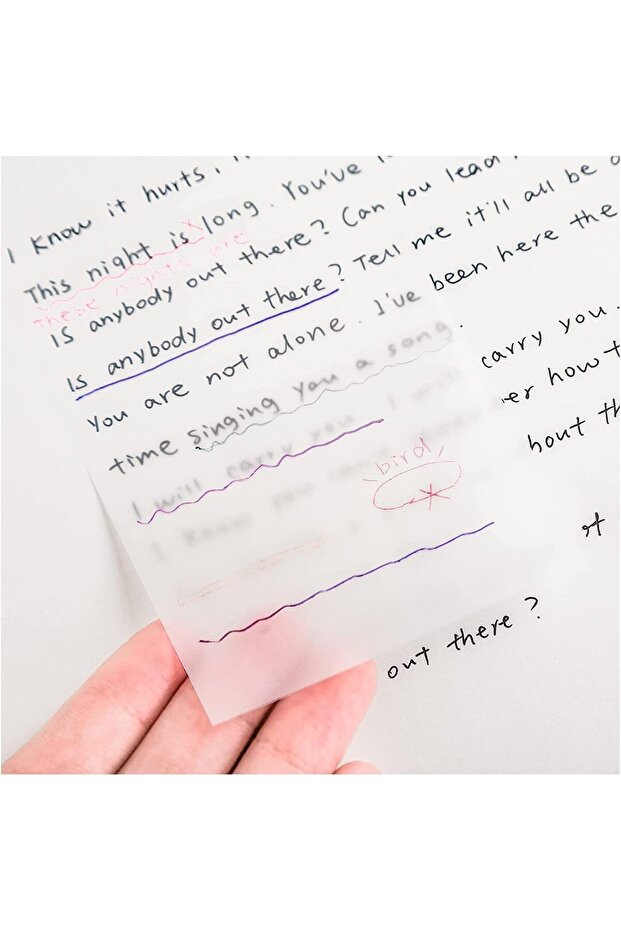 I know it hurts,
This night is long. You've
These nights are
Is anybody out there? Can you lead
Is anybody out there? Tell me it'll all be
You are not alone. I've been here the
time singing you a song.
I will carry you. I will carry you.
I know you er how
bird
bout
out there?